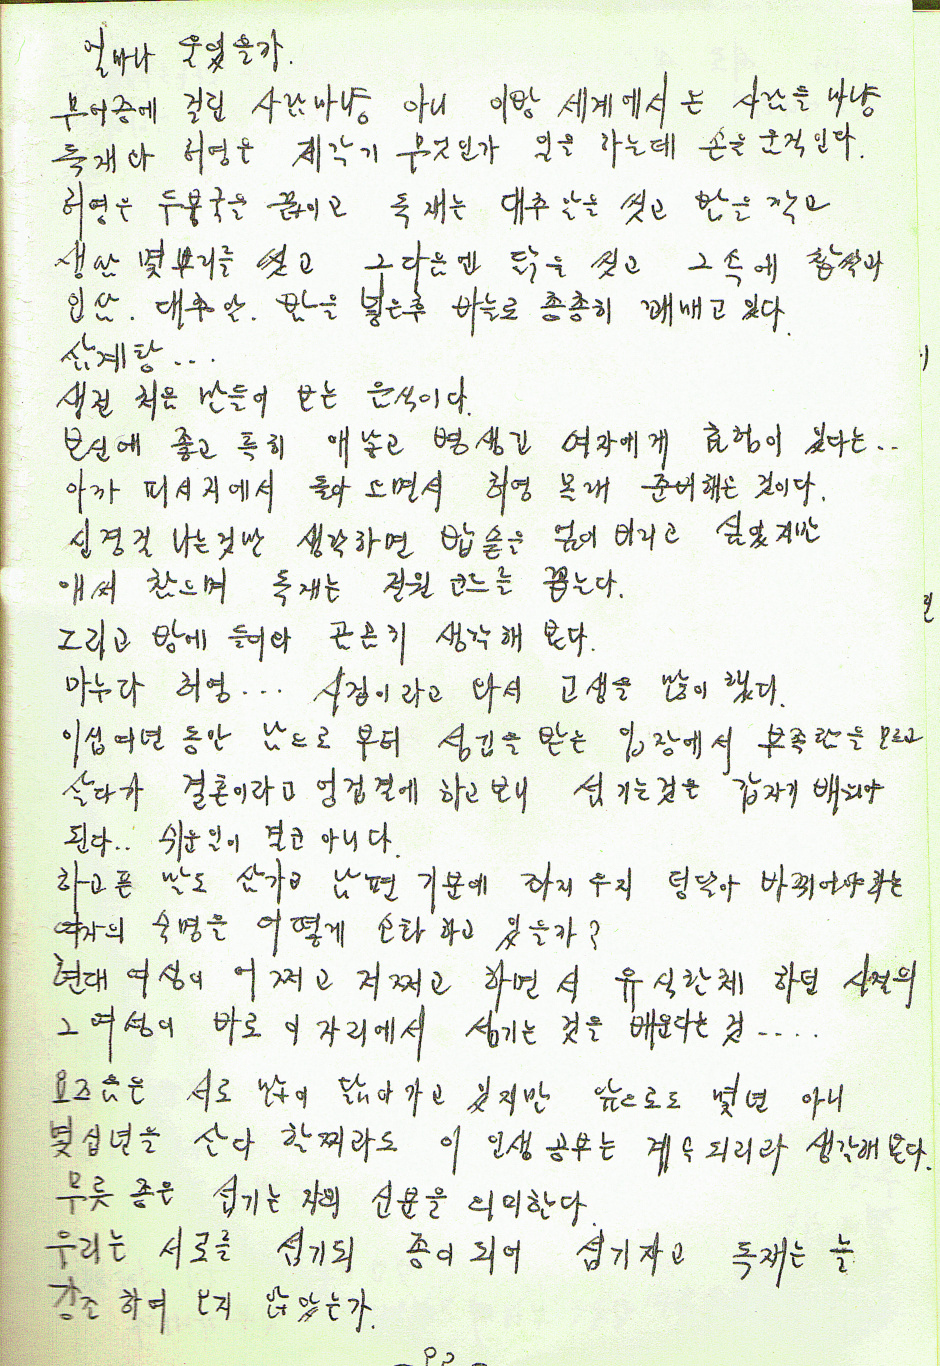 얼마나 울었을까.
무어증에 걸린 사람마냥 아니 이방 세계에서 온 사람들 마냥
독재와 허영은 제각기 무엇인가 일을 하는데 손을 움직인다.
허영은 두붓국을 끓이고 독재는 대추알을 씻고 밤을 깍고
생산 몇뿌리를 씻고 그다음엔 닭을 씻고 그속에 찹쌀과
인삼. 대추알. 밤을 넣은후 바늘로 총총히 꿰매고 있다.
삼계탕...
생전 처음 만들어 보는 음식이다.
보신에 좋고 특히 애낳고 병생긴 여자에게 효험이 있다는..
아까 피서지에서 돌아 오면서 허영 몰래 준비해온 것이다.
신경질 나는것만 생각하면 밥솥을 엎어 버리고 싶었지만
애써 참으며 독재는 전원 코드를 꼽는다.
그리고 방에 들어와 곤곤히 생각해 본다.
마누라 허영... 시집이라고 와서 고생을 많이 했다.
이십여년 동안 남으로 부터 섬김을 받는 입장에서 부족함을 모르고
살다가 결혼이라고 엉겁결에 하고보니 섬기는것을 갑자기 배워야
된다.. 쉬운일이 결코 아니다.
하고픈 말도 삼가고 남편 기분에 좌지우지 덩달아 바뀌어야하는
여자의 숙명을 어떻게 소화하고 있을까?
현대 여성이 어쩌고 저쩌고 하면서 유식한체 하던 시절의
그 여성이 바로 이 자리에서 섬기는 것을 배운다는 것....
요즈음은 서로 많이 닮아가고 있지만 앞으로도 몇년 아니
몇십년을 산다 할찌라도 이 인생공부는 계속되리라 생각해 본다.
무릇 종은 섬기는 자의 신분을 의미한다.
우리는 서로를 섬기되 종이 되어 섬기자고 독재는 늘
강조하여 오지 않았는가.